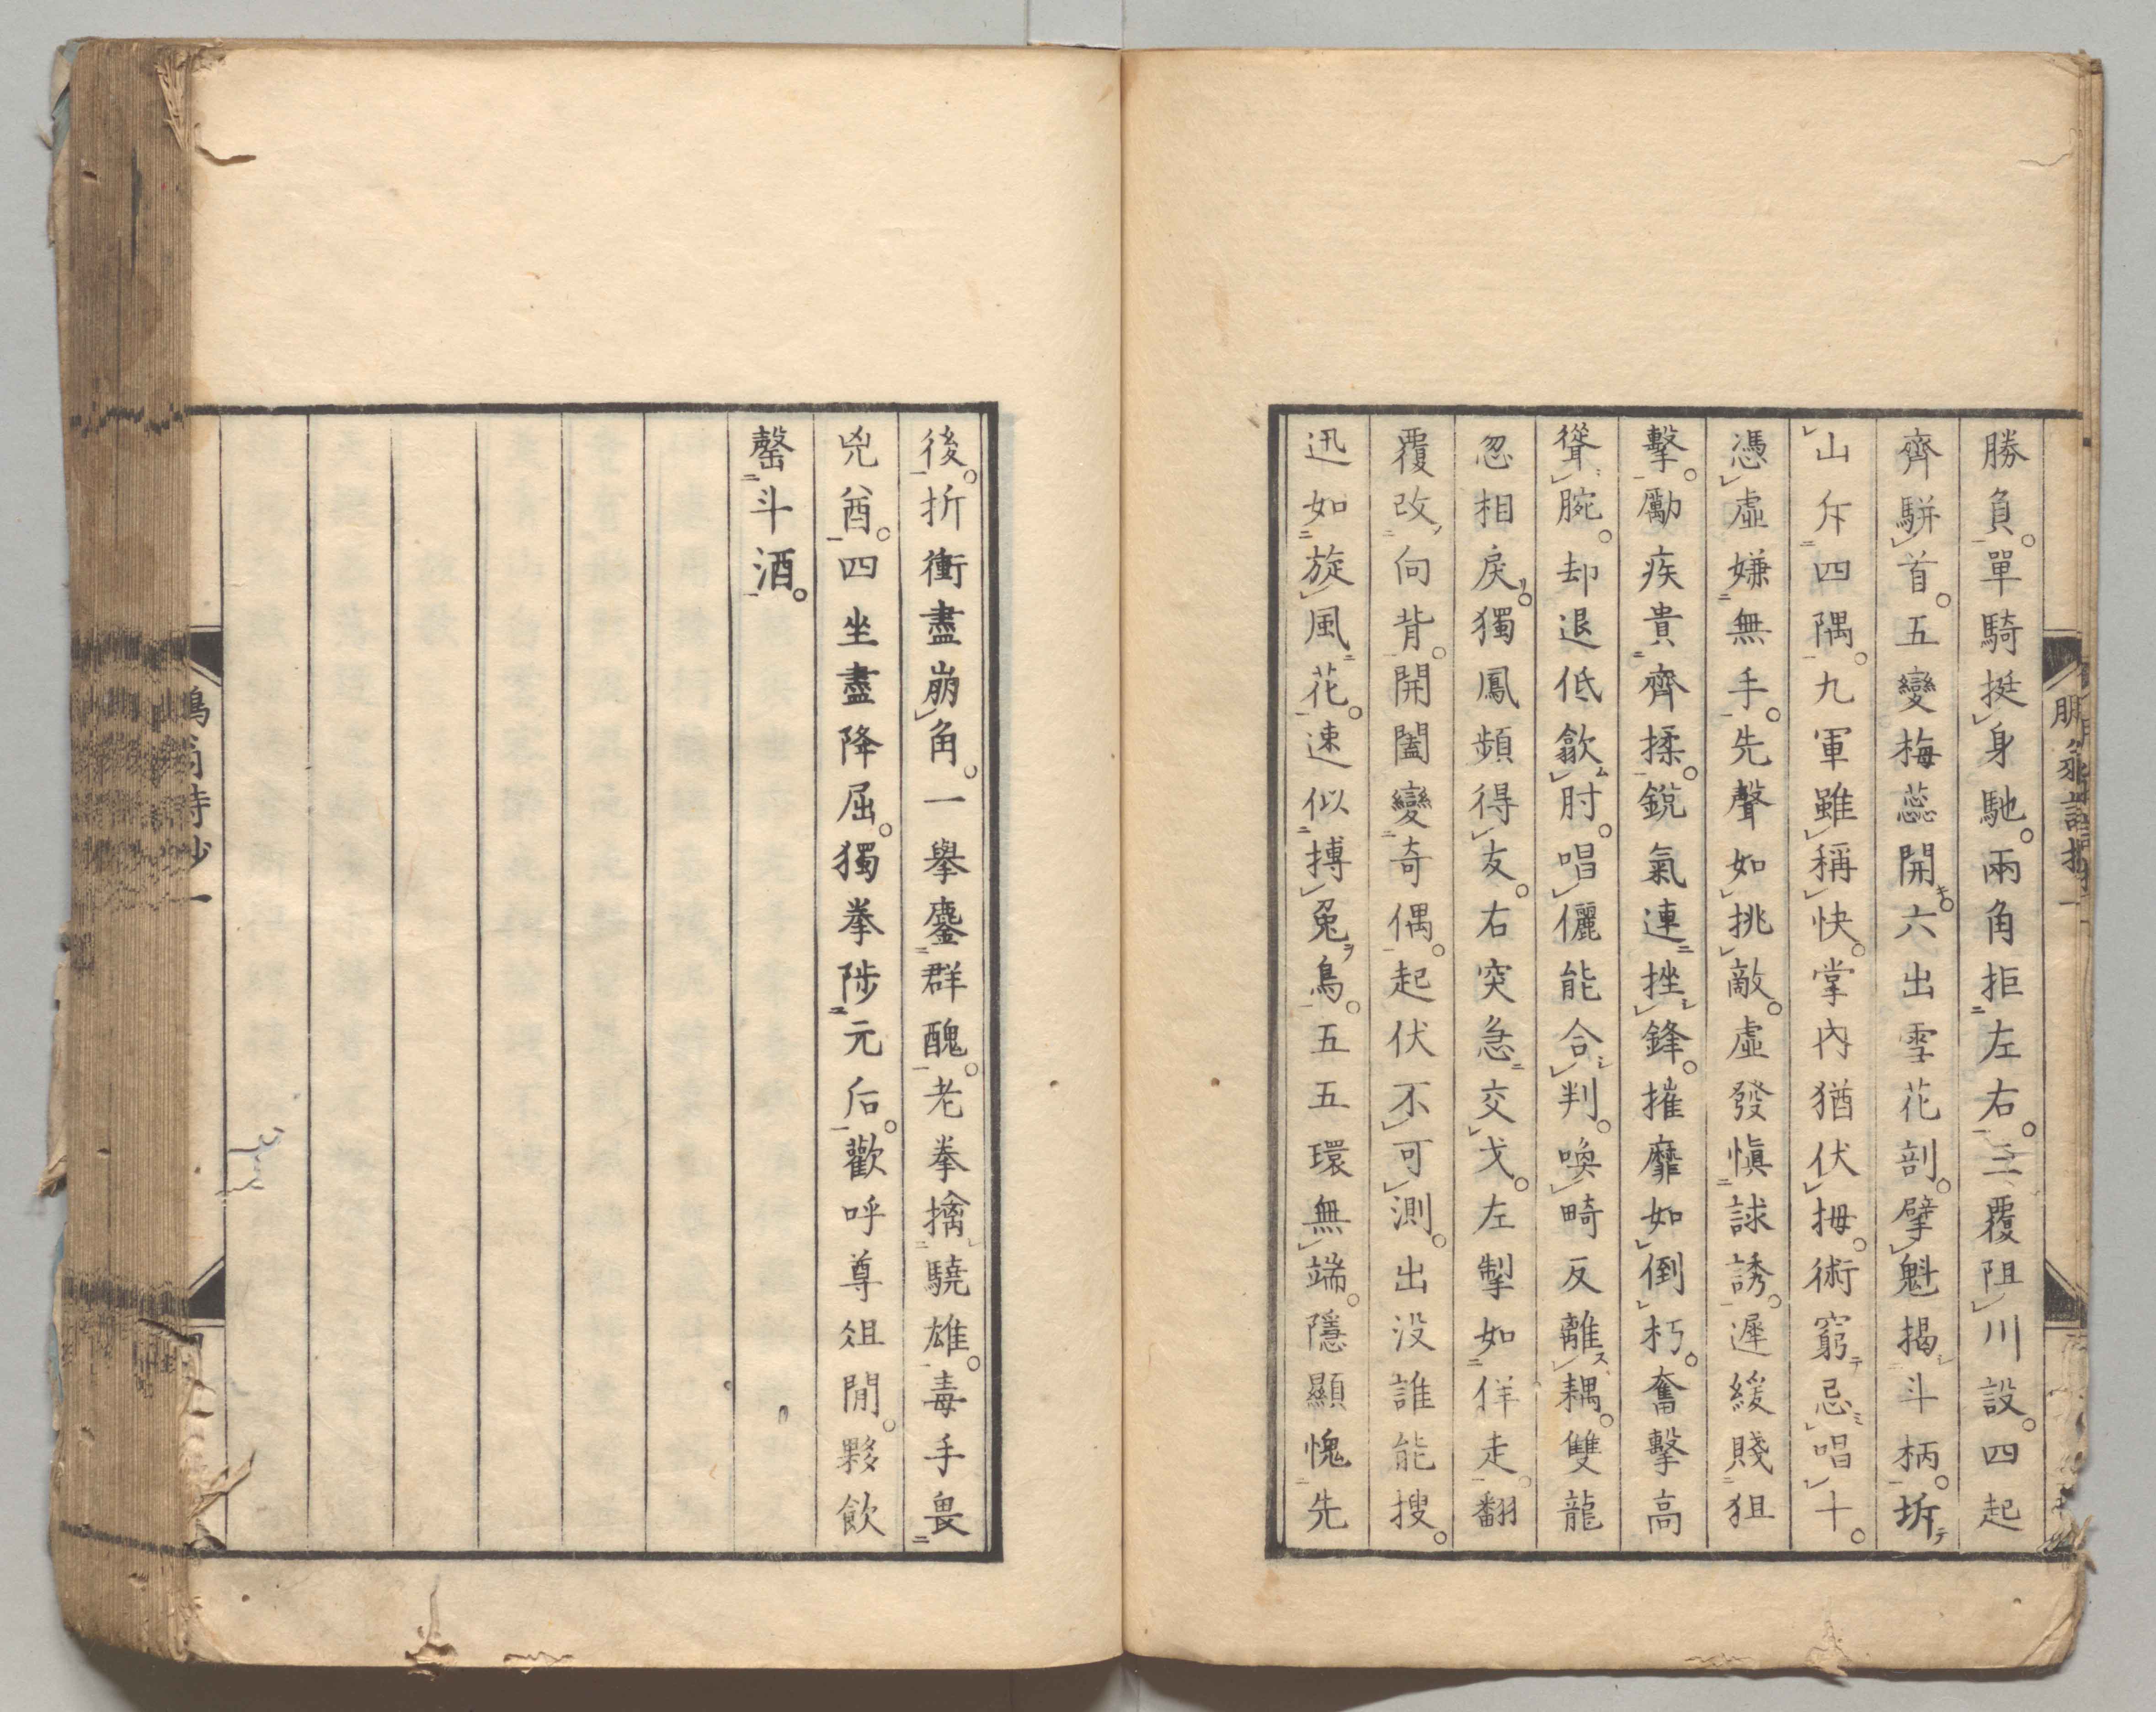 勝負。單騎挺身馳。兩角拒左右。三覆阻川設。四起
齊駢首。五變梅蕊開。六出雪花剖。擘魁揭斗柄。坼
山斥四隅。九軍雖稱快。掌內猶伏拇。術窮忌唱十。
憑虛嫌無手。先聲如挑敵。虛發愼誘。遲緩賤狙
擊。勵疾貴齊揉。銳氣連挫鋒。摧靡如倒朽。奮擊高
聳腕。却退低歙肘。唱儷能合判。喚畸反離耦。雙龍
忽相戾。獨鳳頻得友。右突急交戈。左掣如佯走。翻
覆改向背。開闔變奇偶。起伏不可測。出没誰能搜。
迅如旋風花。速似搏兔鳥。五五環無端。隱顯愧先
後。折衝盡崩角。一擧鏖群醜。老拳擒驍雄。毒手畏
兇酋。四坐盡降屈。獨拳陟元后。歡呼尊俎間。夥飲
罄斗酒。
翁詩鈔一